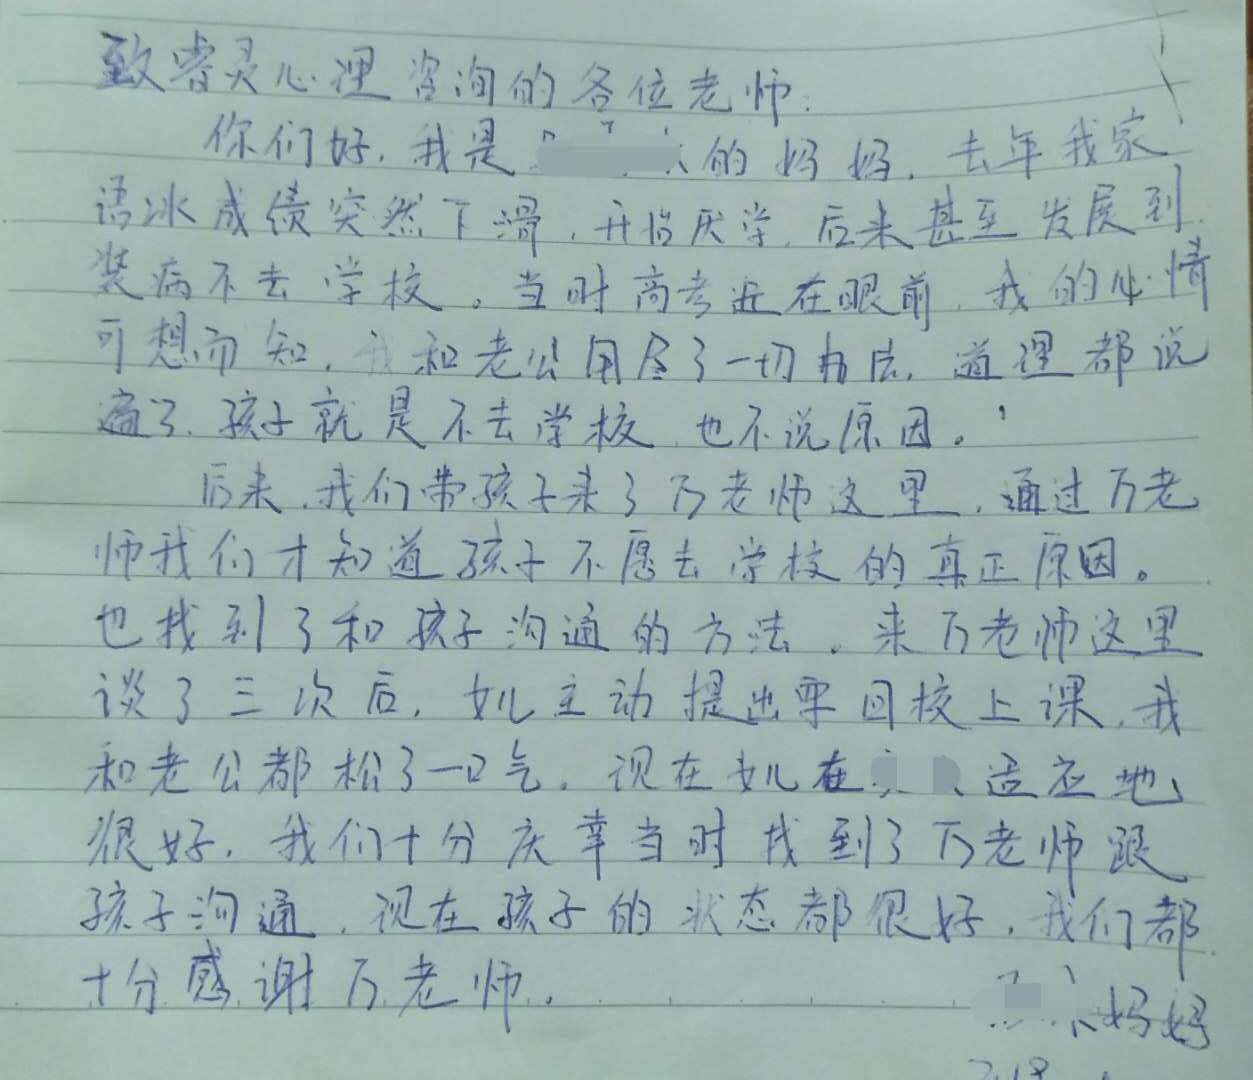 致睿灵心理咨询的各位老师:
你们好,我是 的妈妈,去年我家
语冰成绩突然下滑,开始厌学,后来甚至发展到
装病不去学校。当时高考近在眼前,我的心情
可想而知,我和老公用尽了一切办法,道理都说
遍了,孩子就是不去学校,也不说原因。
后来,我们带孩子来了万老师这里,通过万老
师我们才知道孩子不愿去学校的真正原因。
也找到了和孩子沟通的方法。来万老师这里
谈了三次后,女儿主动提出要回校上课,我
和老公都松了一口气。现在女儿在 适应地
很好,我们十分庆幸当时找到了万老师跟
孩子沟通,现在孩子的状态都很好,我们都
十分感谢万老师。
妈妈